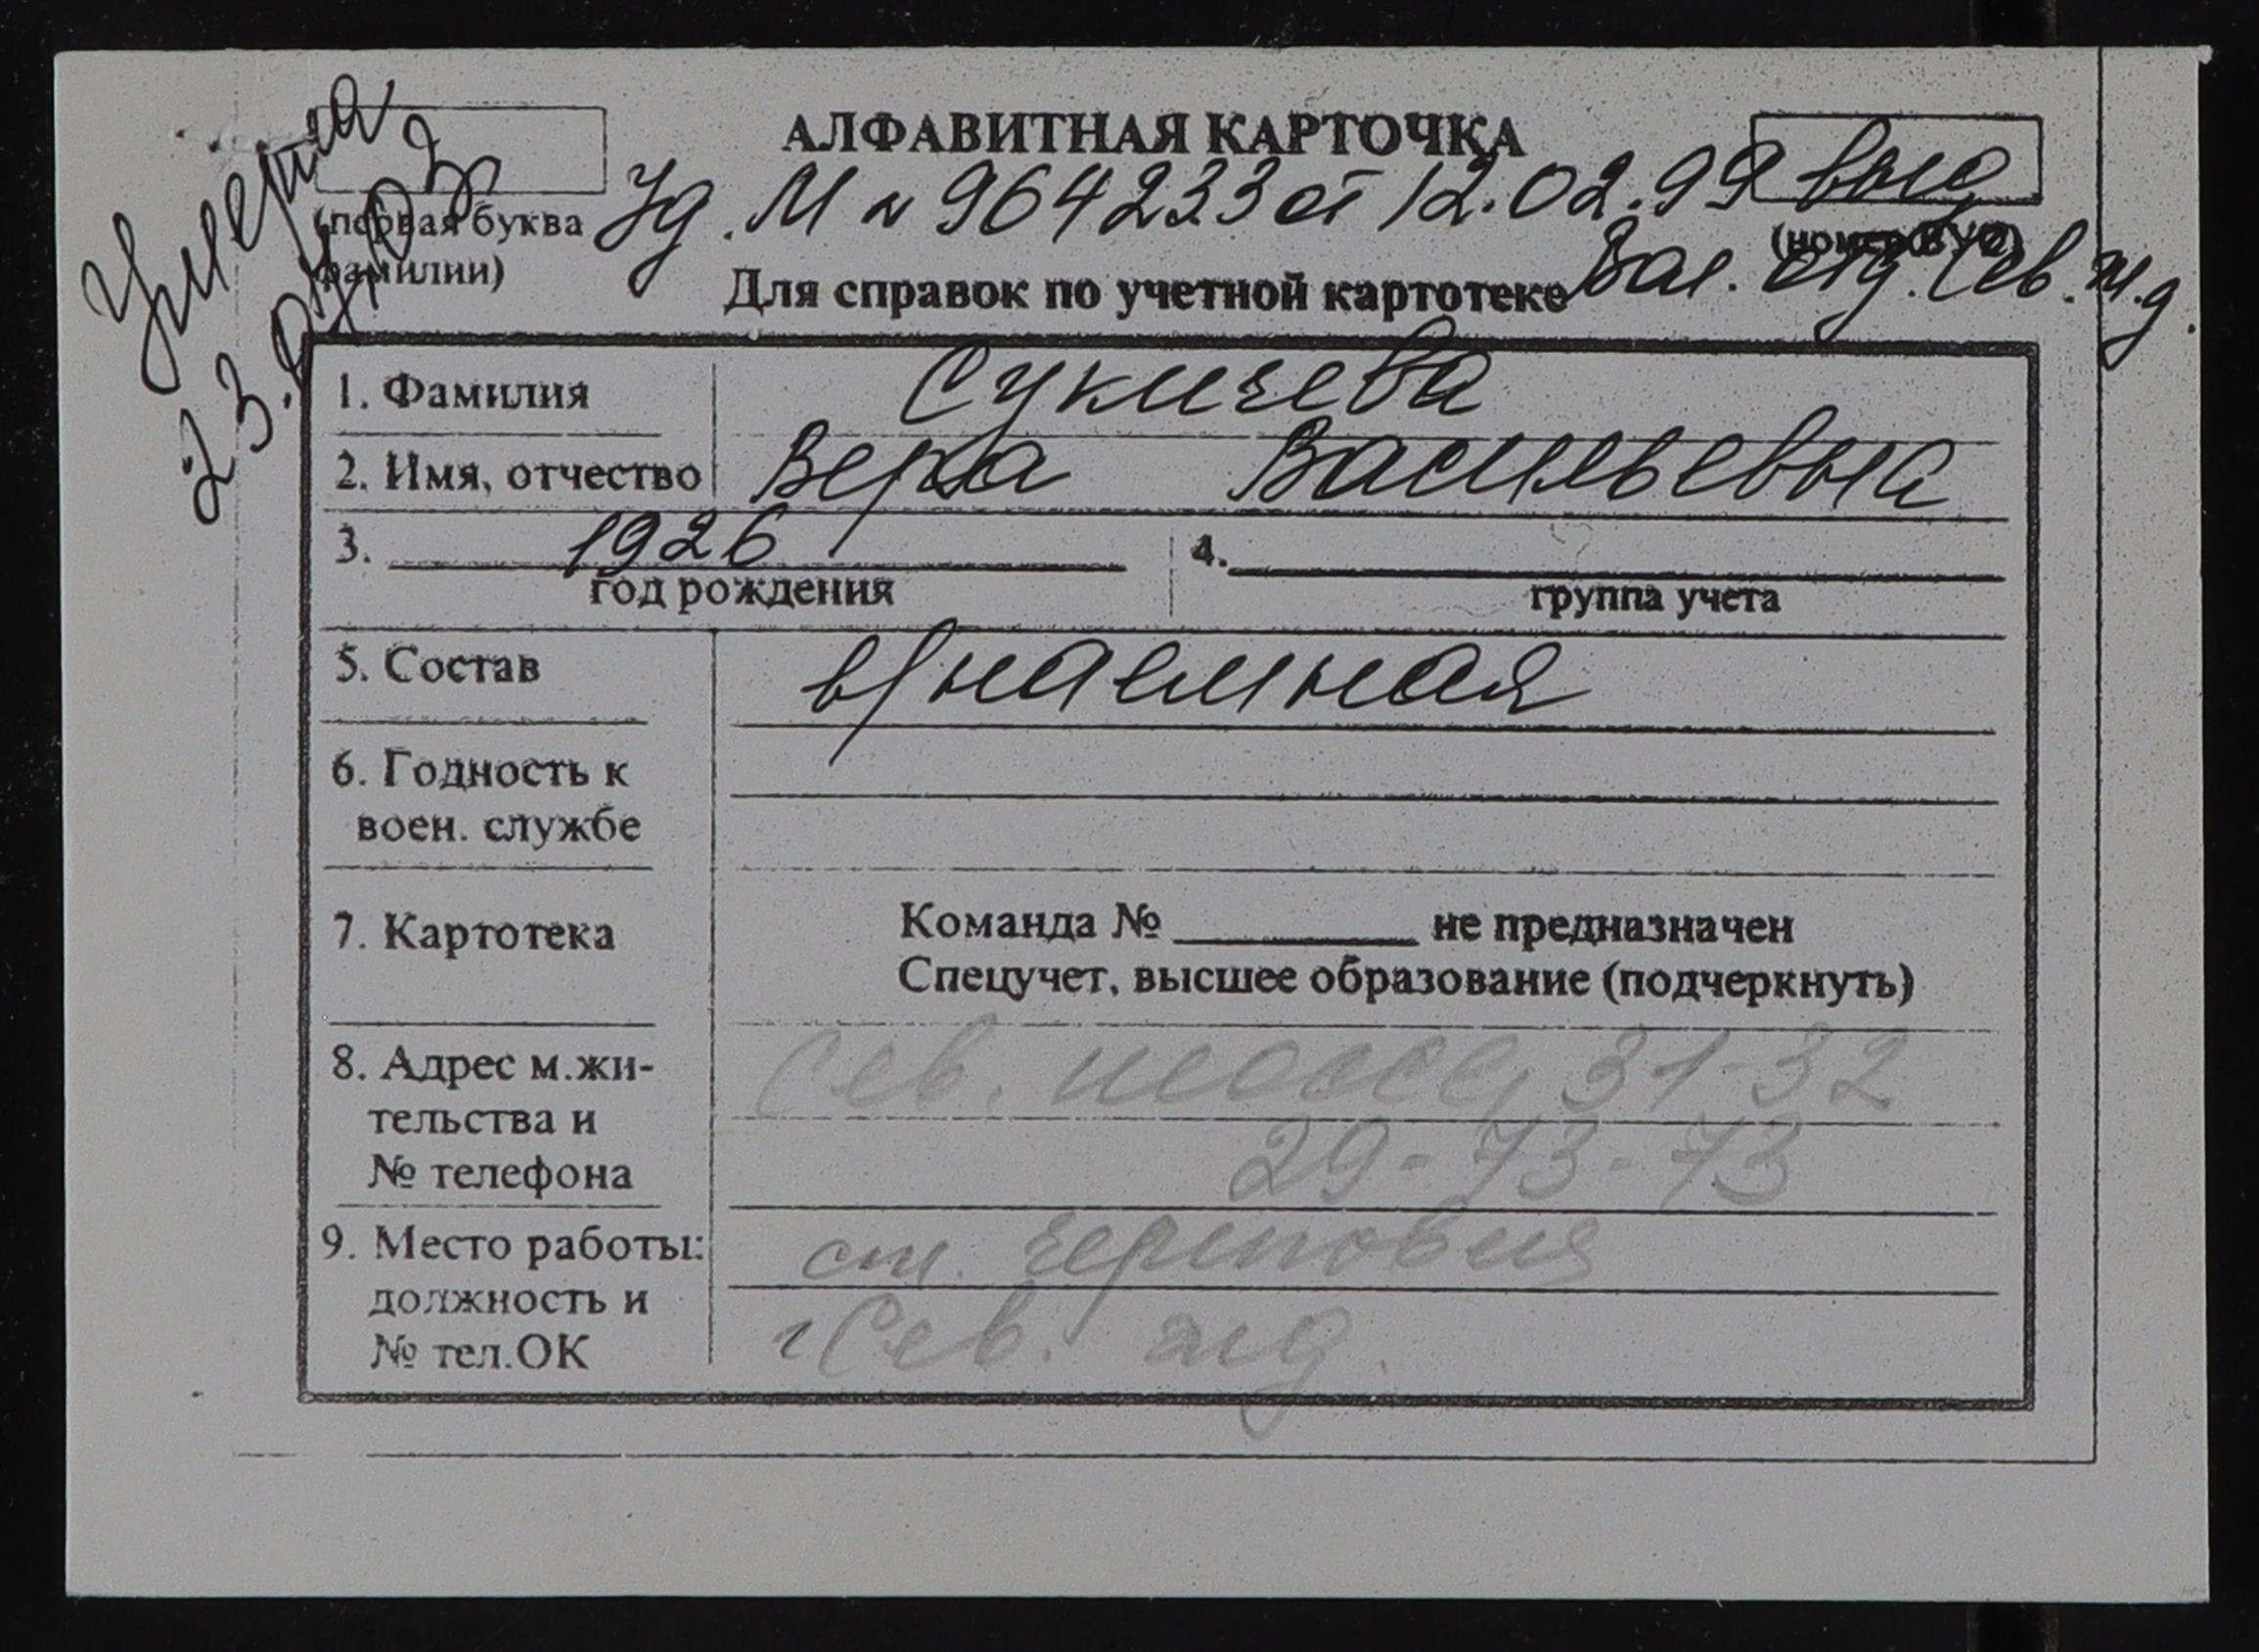 Умерла
23.04.03
АЛФАВИТНАЯ КАРТОЧКА
Уд. М № 964233 от 12.02.99 выд
(первая буква фамилии)
(номер ВУС)
Вол. отд. Сев. ж.д.
Для справок по учетной картотеке
1. Фамилия Сукичева
2. Имя, отчество Вера Васильевна
3. 1926 4.
год рождения группа учета
5. Состав в/наемная
6. Годность к
воен. службе
7. Картотека Команда № не предназначен
Спецучет, высшее образование (подчеркнуть)
8. Адрес м.жи- Сев. шоссе, 31-32
тельства и
№ телефона 29-73-73
9. Место работы: ст. Череповец
должность и
№ тел.ОК Сев. жд.